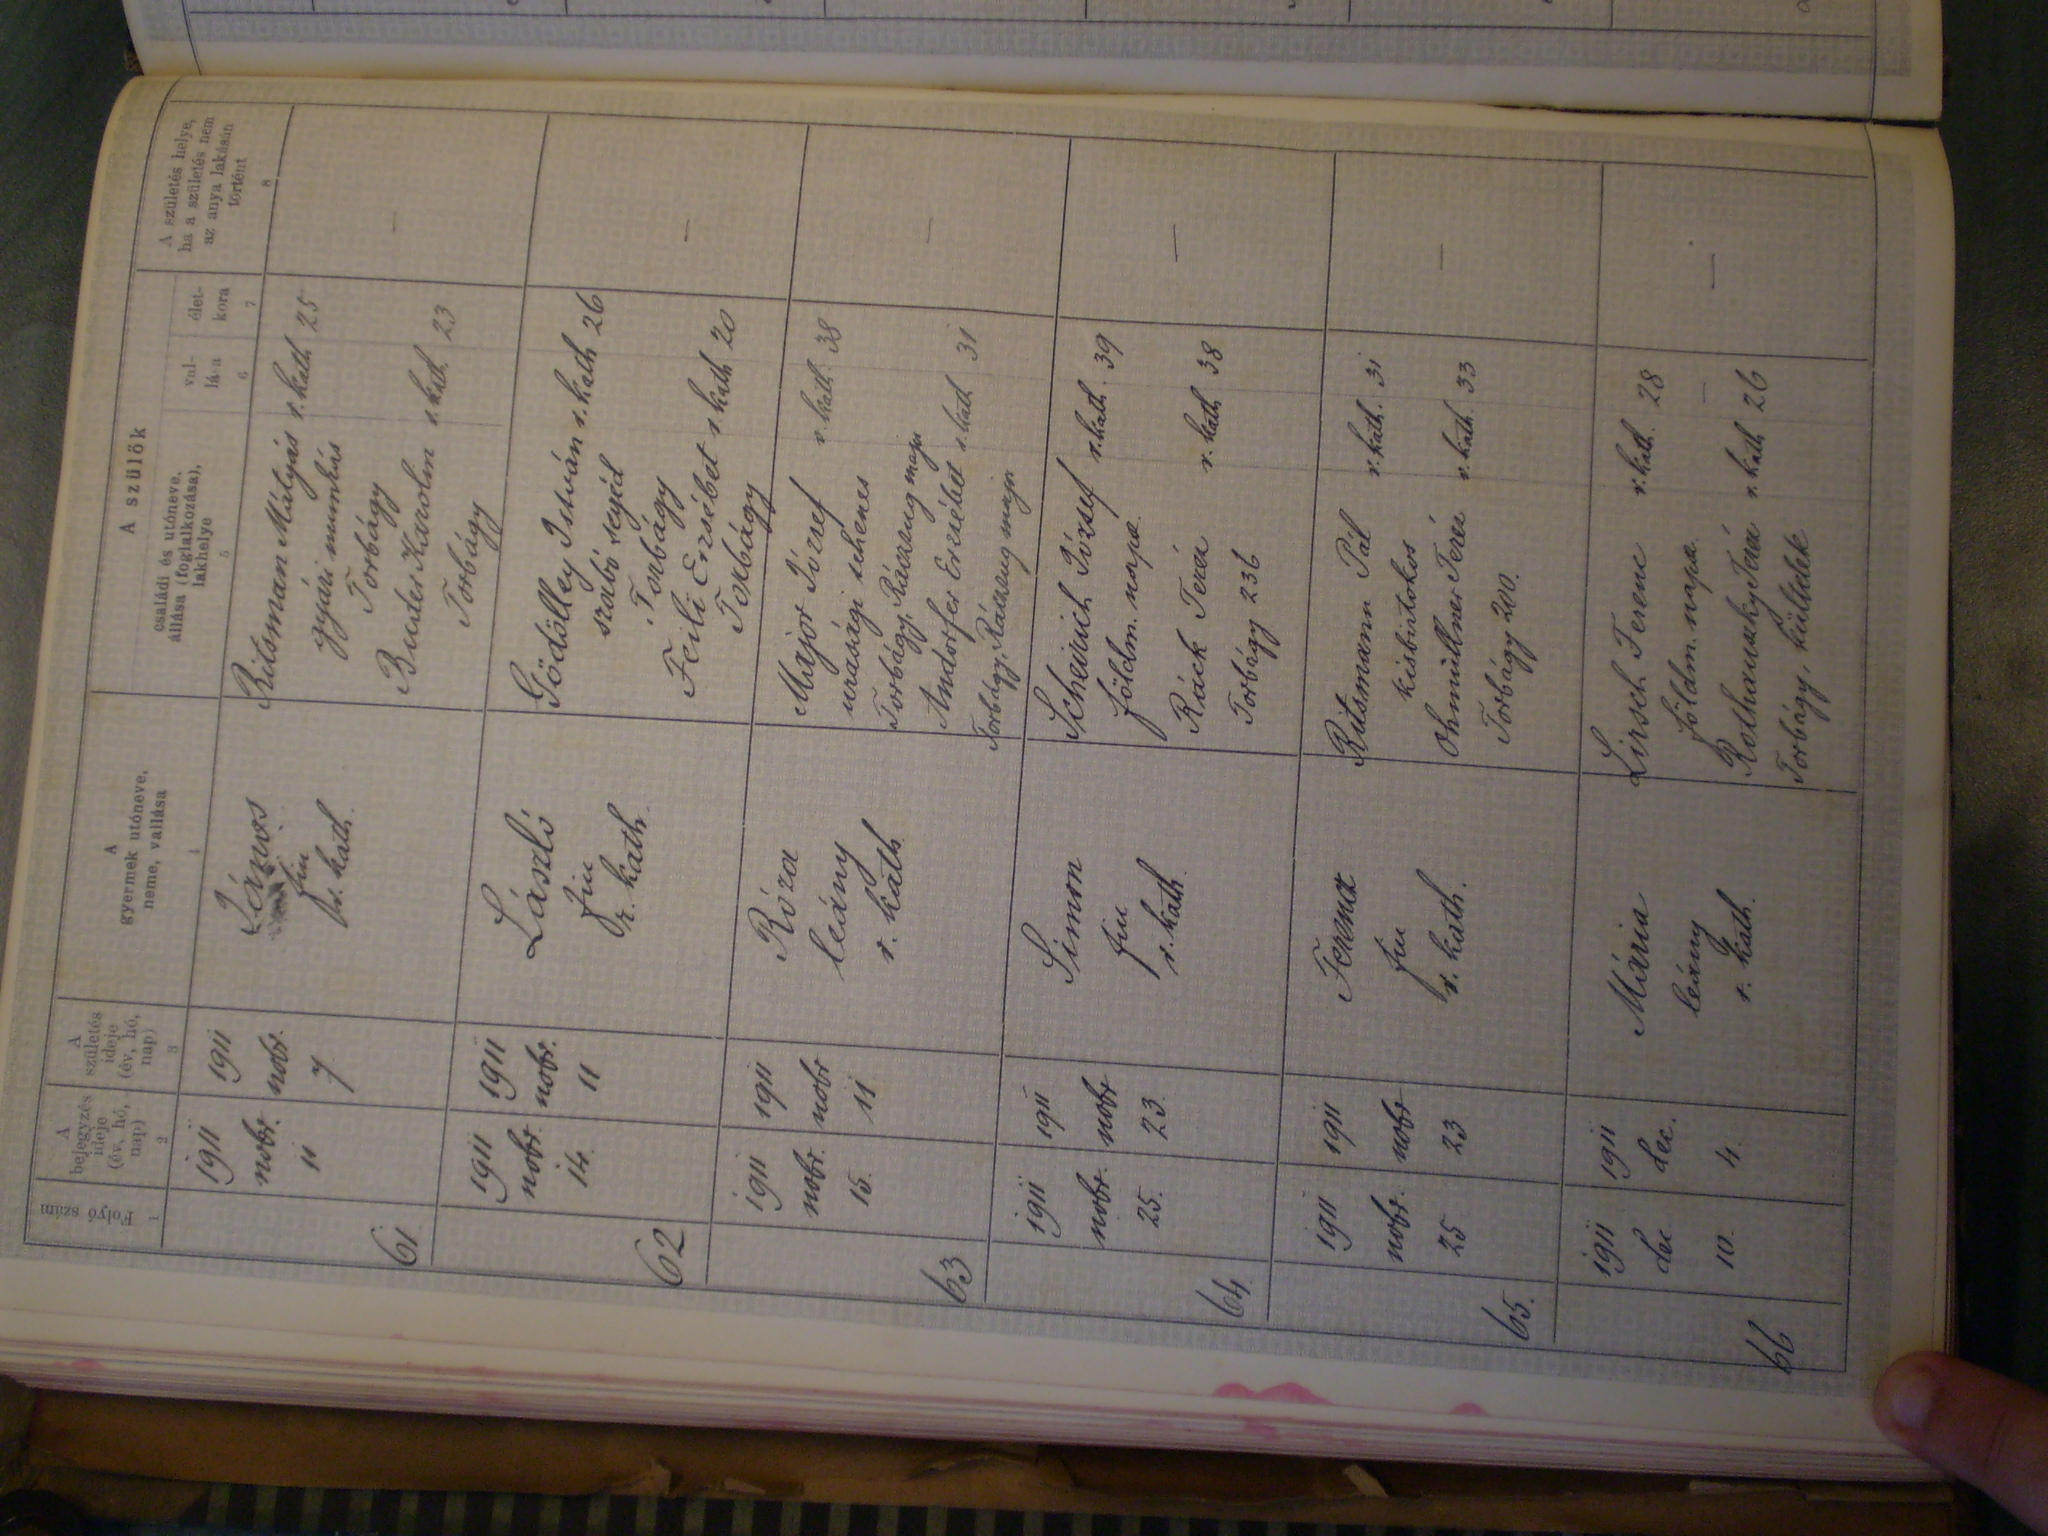 Folyó szám
1
A
bejegyzés
ideje
(év, hó,
nap)
2
A
születés
ideje
(év, hó,
nap)
3
A
gyermek utóneve,
neme, vallása
4
A szülők
családi és utóneve,
állása (foglalkozása),
lakhelye
5
val-
lása
6
élet-
kora
7
A születés helye,
ha a születés nem
az anya lakásán
történt
8
61.
1911
nobr.
11
1911
nobr.
7
János
fiu
r. kath.
Ritsman Mátyás r. kath 25
gyári munkás
Torbágy
Buder Karolin r. kath. 23
Torbágy
—
62
1911
nobr.
14.
1911
nobr.
11
László
fiu
r. kath.
Gödölley István r. kath 26
szabó segéd
Torbágy
Feili Erzsébet r. kath 20
Torbágy
—
63
1911
nobr.
15.
1911
nobr
11
Róza
leány
r. kath
Major József r. kath. 38
urasági tehenes
Torbágy,
Andorfer Erzsébet r. kath 31
Torbágy,
—
64.
1911
nobr.
25.
1911
nobr
23.
Simon
fiu
r. kath.
Scheinich József r. kath. 39
földm. napsz.
Ráck Teréz r. kath 38
Torbágy 236
—
65.
1911
nobr.
25
1911
nobr
23
Ferencz
fiu
r. kath.
Ritsmann Pál r. kath. 31
kisbirtokos
Ohmüllner Teréz r. kath. 33
Torbágy 200.
—
66
1911
dec
10.
1911
dec.
4.
Mária
leány
r. kath.
Lirsch Ferenc r. kath. 28
földm. napsz. —
Rothauszky Teréz r. kath 26
Torbágy, kültelek
—